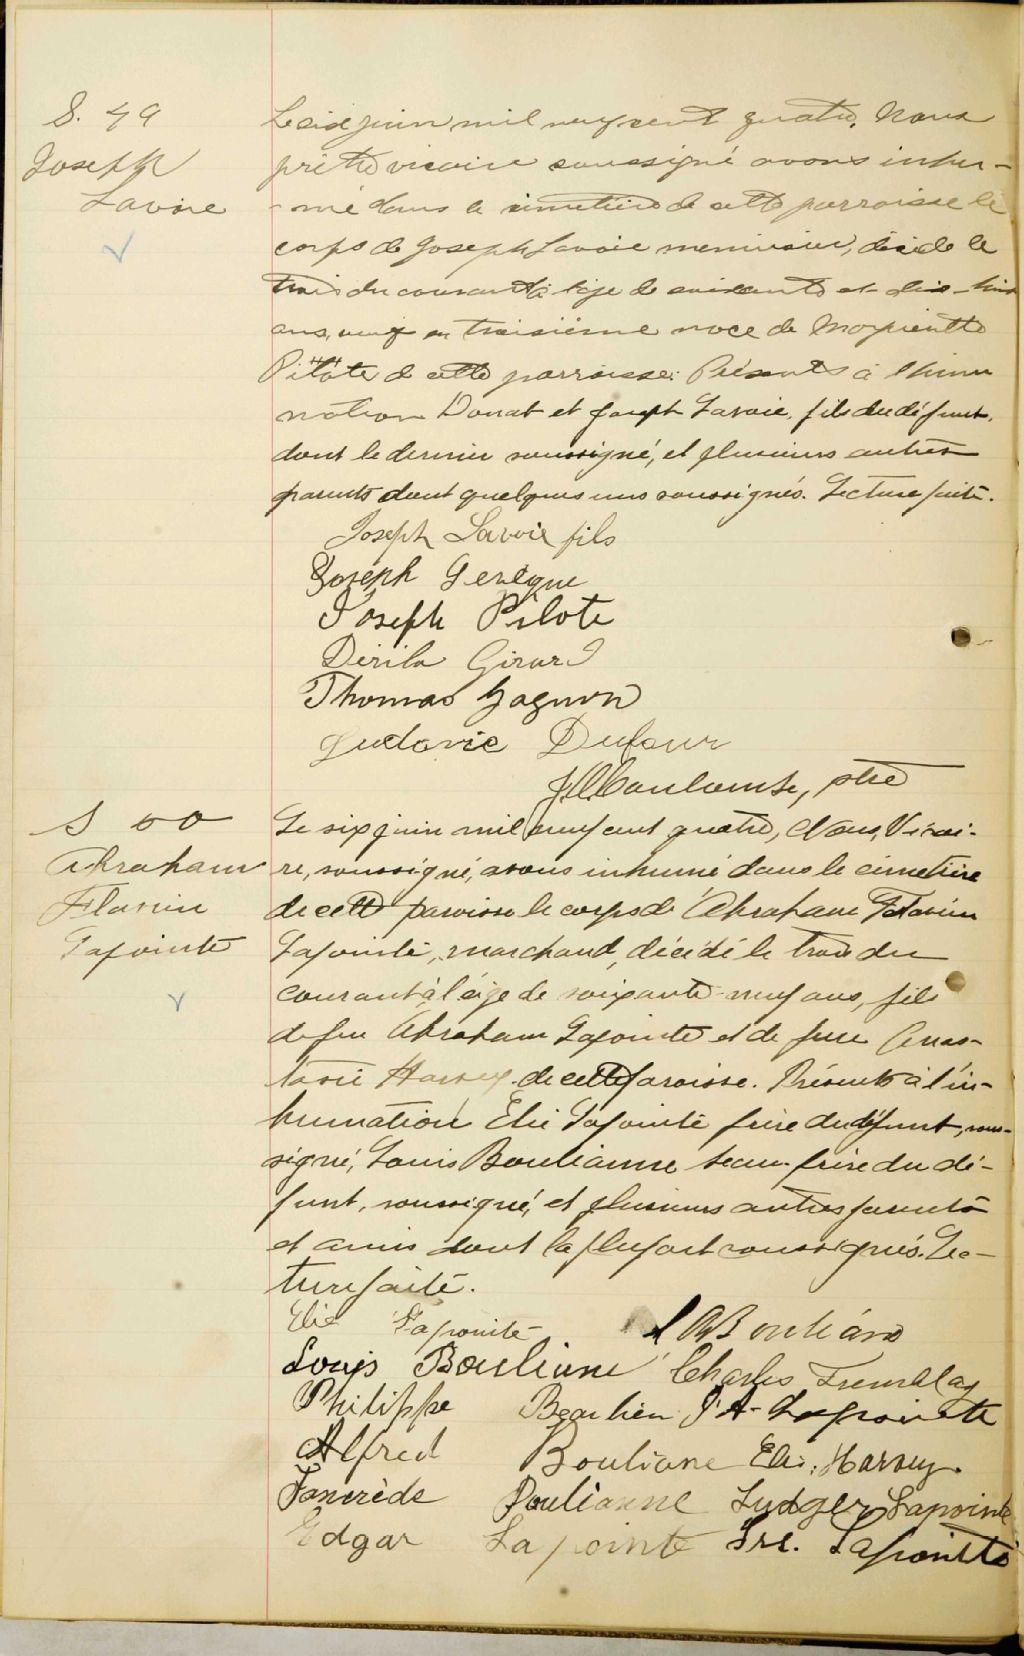 S. 49
Joseph
Lavoie
Le six juin mil neuf cent quatre, Nous
prêtre vicaire soussigné avons inhu-
-mé dans le cimetière de cette parroisse le
corps de Joseph Lavoie menuisier, décédé le
trois du courant à l'âge de soixante et dix-huit
ans, veuf en troisième noce de
Pilote de cette parroisse. Présents à l'hinu
mation Donat et Joseph Lavoie, fils du défunt,
dont le dernier soussigné, et plusieurs autres
parents dont quelques uns soussignés. Lecture faite.
Joseph Lavoie fils
Joseph Levêque
Joseph Pilote
Dérila Girard
Thomas Gagnon
Ludovic Dufour
ptre
S
Abraham
Flavien
Lapointe
Le six juin mil neuf cent quatre, Nous, Vicai-
re, soussigné, avons inhumé dans le cimetière
de cette paroisse le corps de Abraham Flavien
Lapointe, marchand, décédé le trois du
courant à l'âge de soixante-neuf ans, fils
de feu Abraham Lapointe et de feue Anas-
tasie Harvey de cette paroisse. Présents à l'in-
humation Elie Lapointe frère du défunt, sous-
signé, Louis Boulianne beau-frère du dé-
funt, soussigné, et plusieurs autres parents
et amis dont la plupart soussignés. Lec-
ture faite.
Elie Lapointe
Louis Bouliane Charles Tremblay
Philippe Beaulieu J. A. Lapointe
Alfred Bouliane Elie Harvey.
Tancrède Boulianne Ludger Lapointe
Edgar Lapointe Lapointe